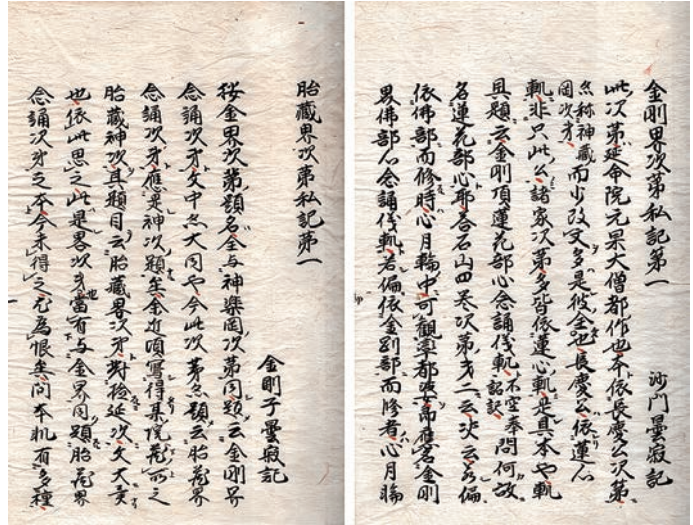 金剛界次第私記第一
沙門曇寂記
此次第延命院元杲大僧都作也本依長慶公次第
然称神蔵而少改文多是彼全也長慶公依蓮心
軌非只此公諸家次第多皆依蓮心軌是具本也軌
具題云金剛頂蓮花部心念誦儀軌不空奉問何故
名蓮花部心耶合石山四巻次第
依佛部而修時心月輪中可観率都婆
界佛部心念誦儀軌若偏依金剛部而修者心月輪
胎蔵界次第私記第一
金剛子曇寂記
按金界次第題名全与神楽岡次第同題云金剛界
念誦次第文中亦大同也今此次第亦題云胎蔵界
念誦次第應是神次題矣余近頃写得某院蔵
胎蔵神次其題目云胎蔵界次第對檢延次文大
也依此思之此是略次第當有与金界同題胎蔵界
念誦次第之本今未得之尤為恨矣問本軌有多種